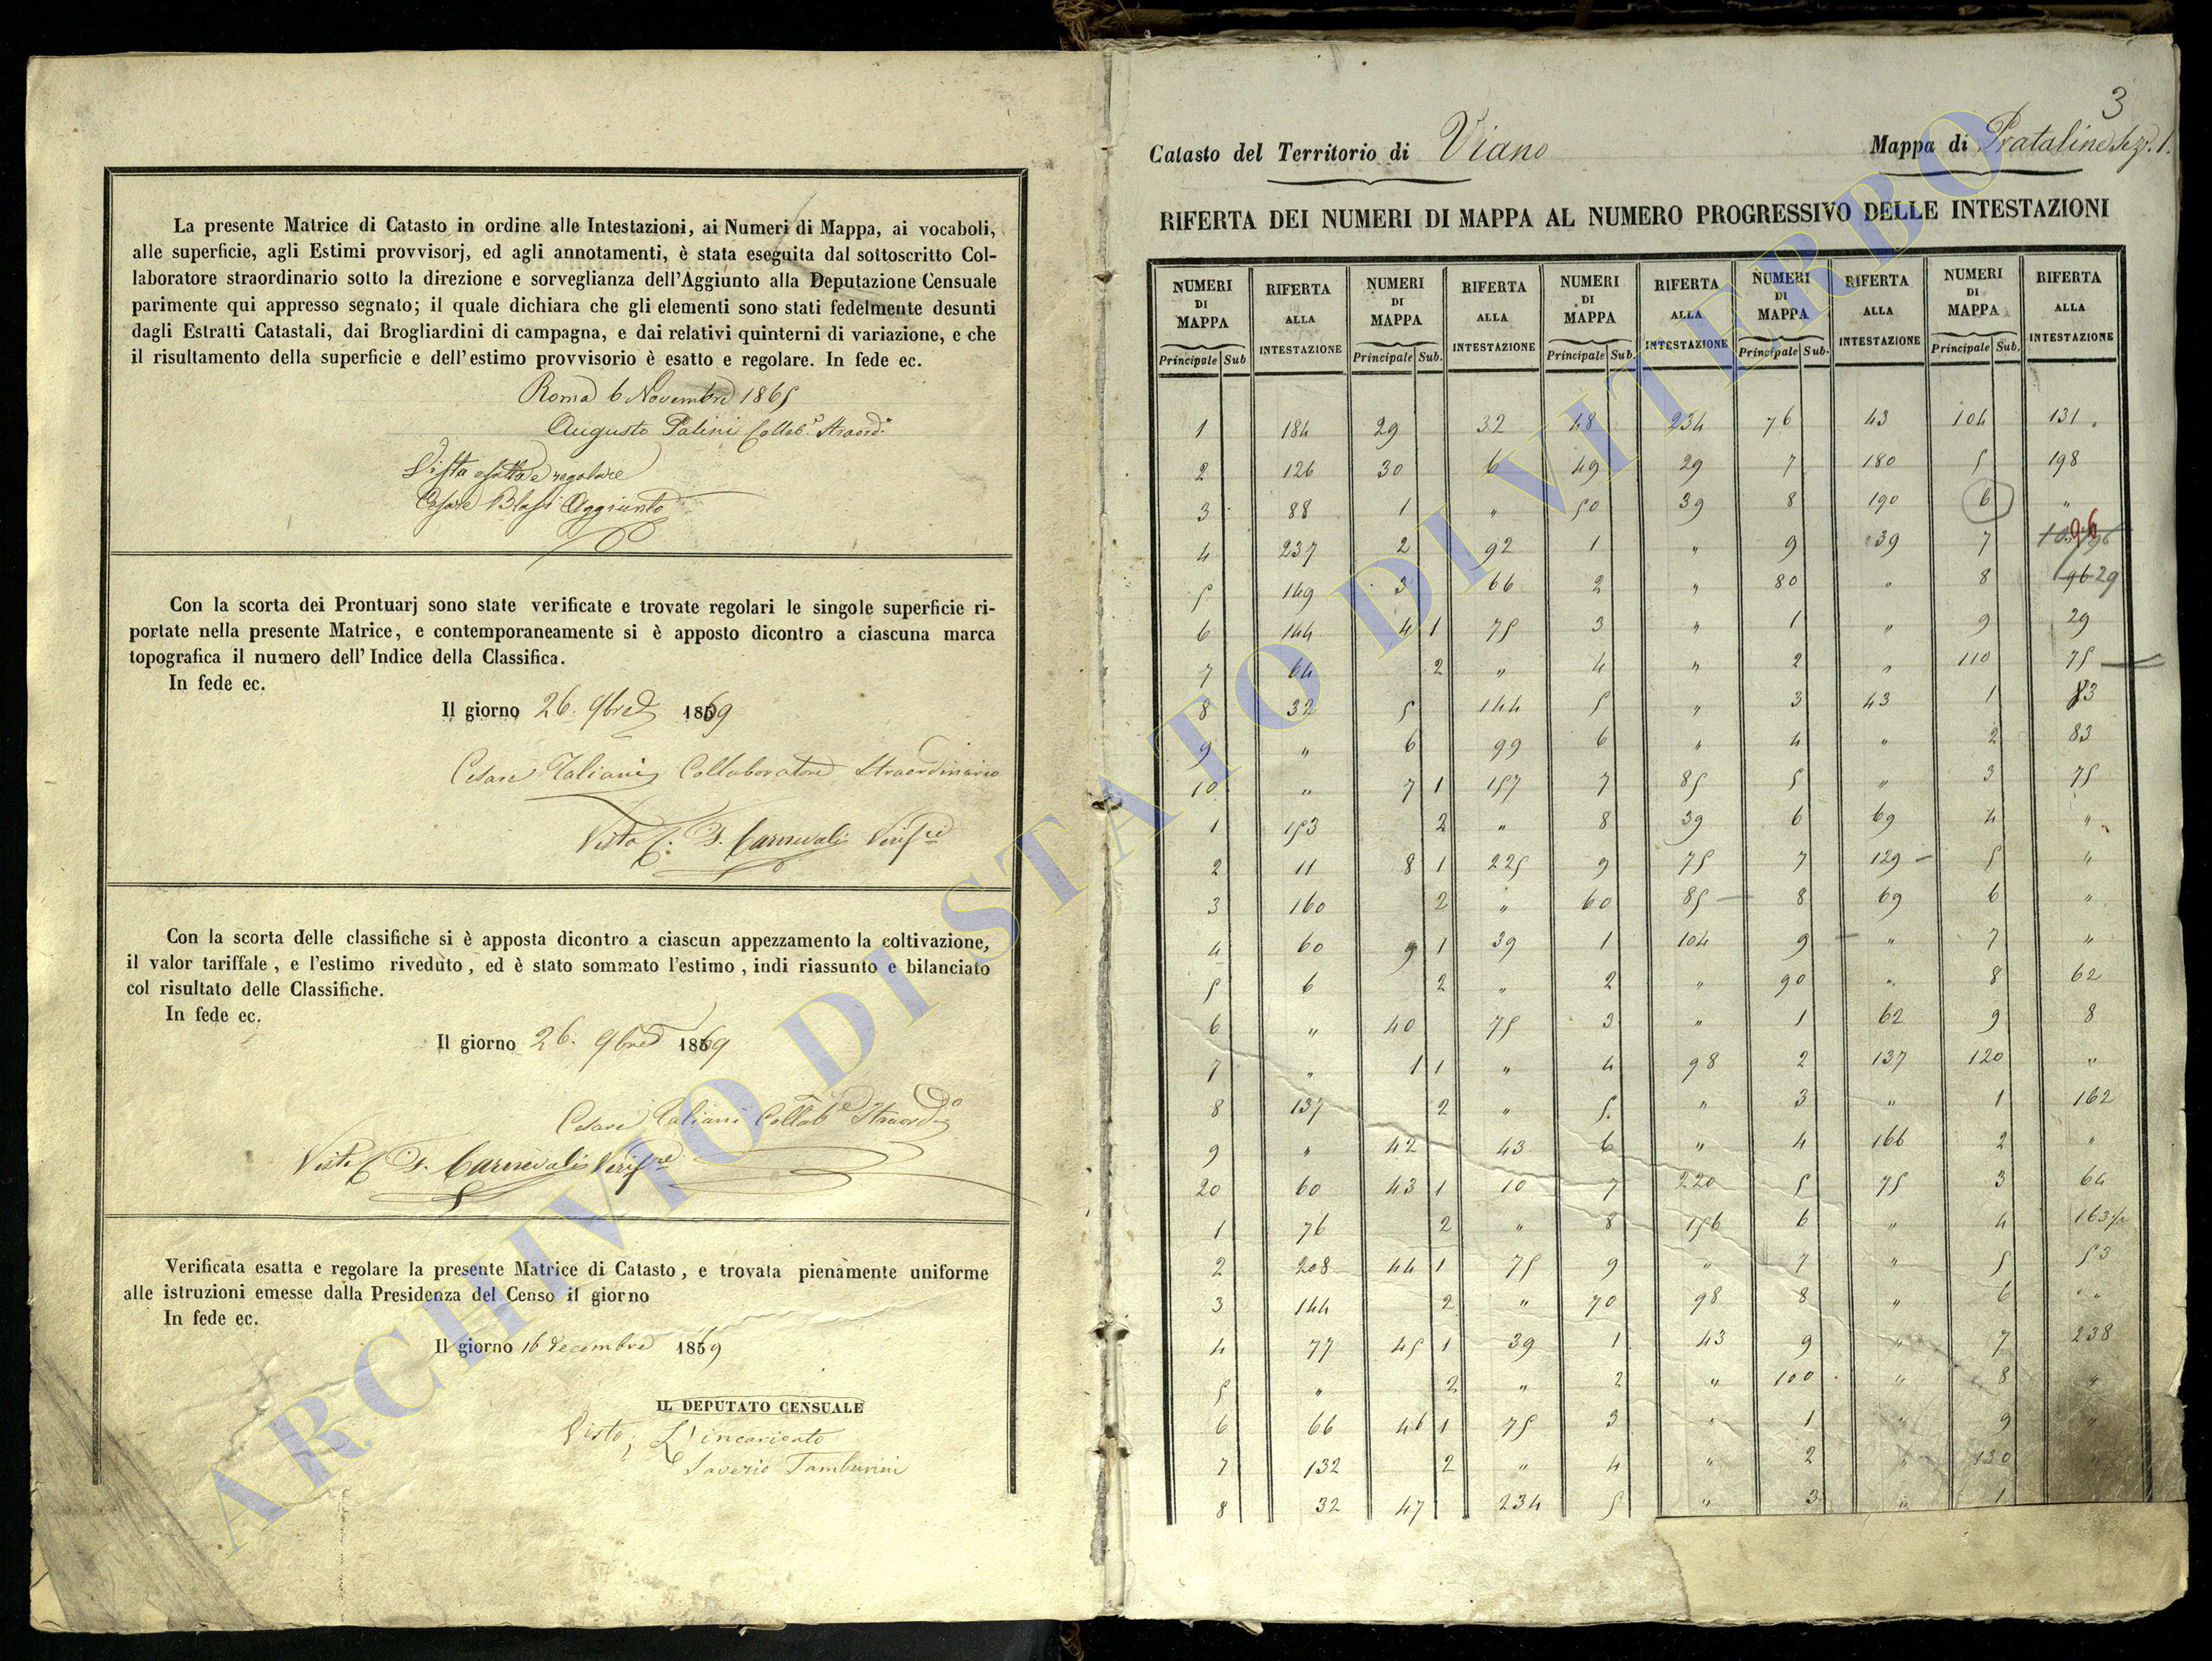 La presente Matrice di Catasto in ordine alle Intestazioni, ai Numeri di Mappa, ai vocaboli,
alle superficie, agli Estimi provvisorj, ed agli annotamenti, è stata eseguita dal sottoscritto Col-
laboratore straordinario sotto la direzione e sorveglianza dell'Aggiunto alla Deputazione Censuale
parimente qui appresso segnato; il quale dichiara che gli elementi sono stati fedelmente desunti
dagli Estratti Catastali, dai Brogliardini di campagna, e dai relativi quinterni di variazione, e che
il risultamento della superficie e dell'estimo provvisorio è esatto e regolare. In fede ec.
Roma 6 Novembre 1865
Augusto Palini Collab.e Straord.o
Vista esatta e regolare
Cesare Blasi Aggiunto
Con la scorta dei Prontuarj sono state verificate e trovate regolari le singole superficie ri-
portate nella presente Matrice, e contemporaneamente si è apposto dicontro a ciascuna marca
topografica il numero dell'Indice della Classifica.
In fede ec.
Il giorno 26. 9bre 1869
Cesare Taliani Collaboratore Straordinario
Visto C. F. Carnevali Verif.re
Con la scorta delle classifiche si è apposta dicontro a ciascun appezzamento la coltivazione,
il valor tariffale, e l'estimo riveduto, ed è stato sommato l'estimo, indi riassunto e bilanciato
col risultato delle Classifiche.
In fede ec.
Il giorno 26. 9bre 1869
Cesare Taliani Collab.e Straord.o
Visto C. F. Carnevali Verif.re
Verificata esatta e regolare la presente Matrice di Catasto, e trovata pienamente uniforme
alle istruzioni emesse dalla Presidenza del Censo il giorno
In fede ec.
Il giorno 16 decembre 1869
IL DEPUTATO CENSUALE
Visto; L'incaricato
Saverio Tamburini
3
Catasto del Territorio di Viano Mappa di Prataline Sez. 1.
RIFERTA DEI NUMERI DI MAPPA AL NUMERO PROGRESSIVO DELLE INTESTAZIONI
NUMERI DI MAPPA RIFERTA ALLA INTESTAZIONE NUMERI DI MAPPA RIFERTA ALLA INTESTAZIONE NUMERI DI MAPPA RIFERTA ALLA INTESTAZIONE NUMERI DI MAPPA RIFERTA ALLA INTESTAZIONE NUMERI DI MAPPA RIFERTA ALLA INTESTAZIONE
Principale Sub Principale Sub. Principale Sub. Principale Sub. Principale Sub.
1 184 29 32 48 234 76 43 104 131
2 126 30 6 49 29 7 180 5 198
3 88 1 " 50 39 8 190 6 "
4 237 2 92 1 " 9 39 7 96
5 149 3 66 2 " 80 " 8 96 29
6 144 4 1 75 3 " 1 " 9 29
7 64 2 " 4 " 2 " 110 75
8 32 5 144 5 " 3 43 1 83
9 " 6 99 6 " 4 " 2 83
10 " 7 1 157 7 85 5 " 3 75
1 153 2 " 8 39 6 69 4 "
2 11 8 1 225 9 75 7 129 5 "
3 160 2 " 60 85 8 69 6 "
4 60 9 1 39 1 104 9 " 7 "
5 6 2 " 2 " 90 " 8 62
6 " 40 75 3 " 1 62 9 8
7 " 1 1 " 4 98 2 137 120 "
8 137 2 " 5 " 3 " 1 162
9 " 42 43 6 " 4 166 2 "
20 60 43 1 10 7 220 5 75 3 64
1 76 2 " 8 156 6 " 4 163
2 208 44 1 75 9 " 7 " 5 53
3 144 2 " 70 98 8 " 6 "
4 77 45 1 39 1 43 9 " 7 238
5 " 2 " 2 " 100 " 8 "
6 66 46 1 75 3 " 1 " 9 "
7 132 2 " 4 " 2 " 130 "
8 32 47 234 5 " 3 " 1
ARCHIVIO DI STATO DI VITERBO